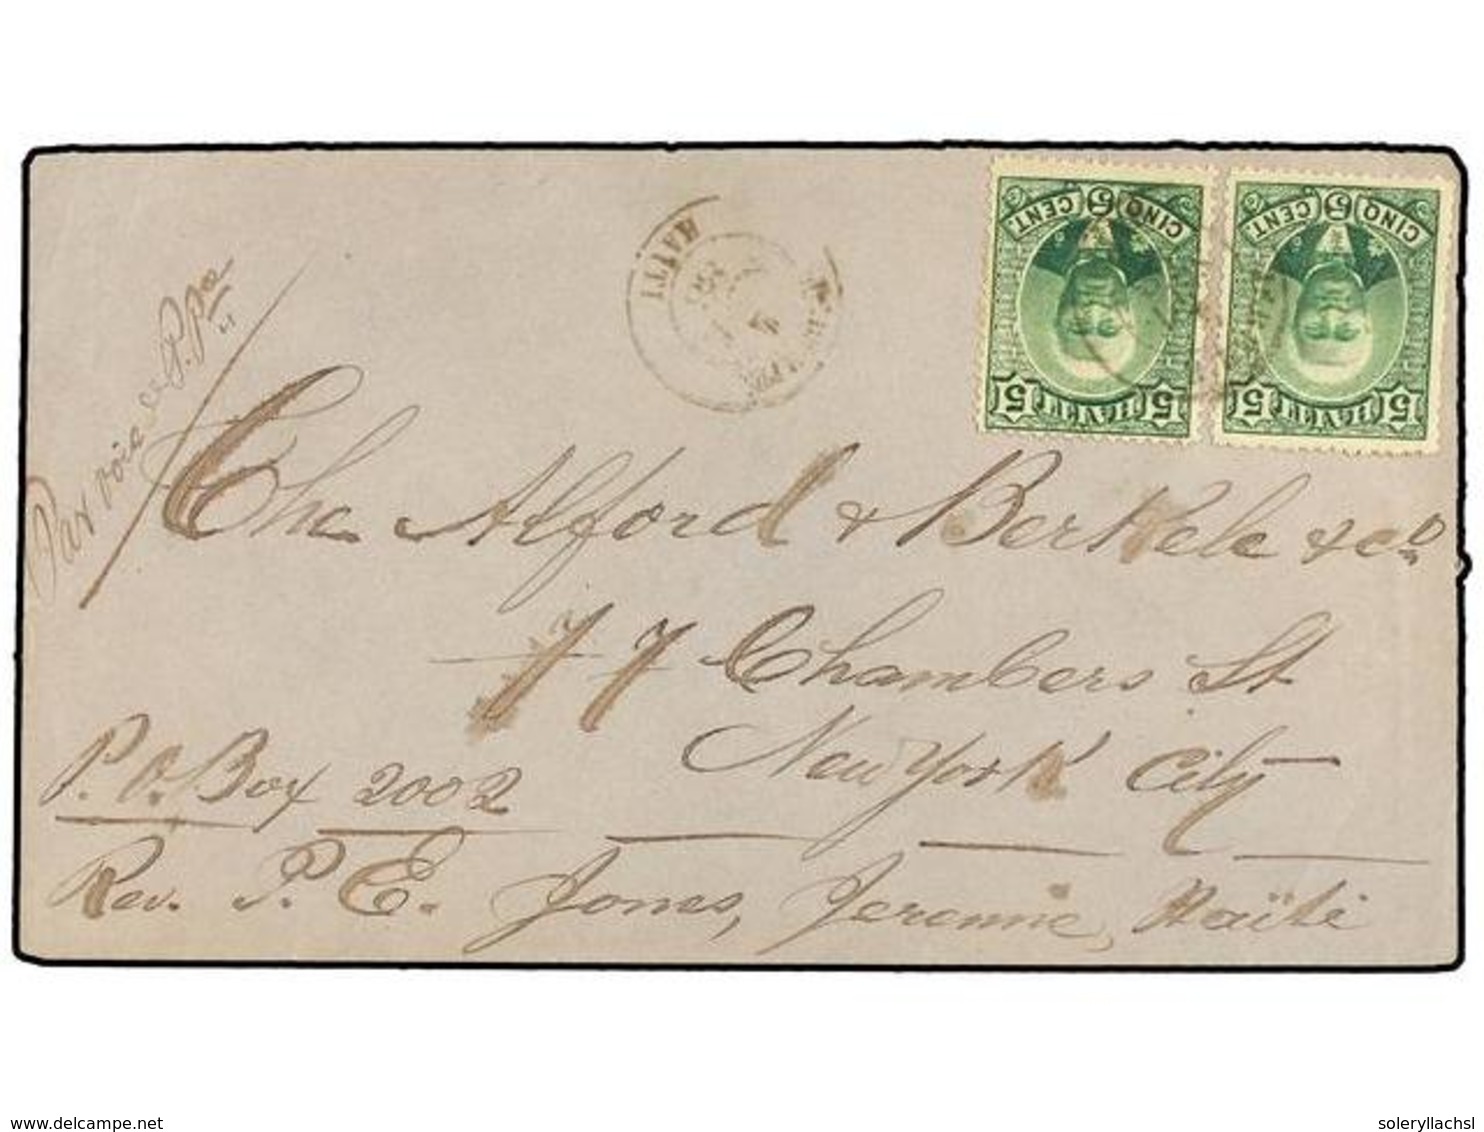 HAITI
CINQ 5 CENT.
CINQ 5 CENT.
5 5
5 5
Par voie de P. P.ce
The Alford & Berkele & Co
77 Chambers St
New York City
P.O. Box 2002
Rev. P. E. Jones, Jeremie, Haïti
www.delcampe.net
soleryllachsl